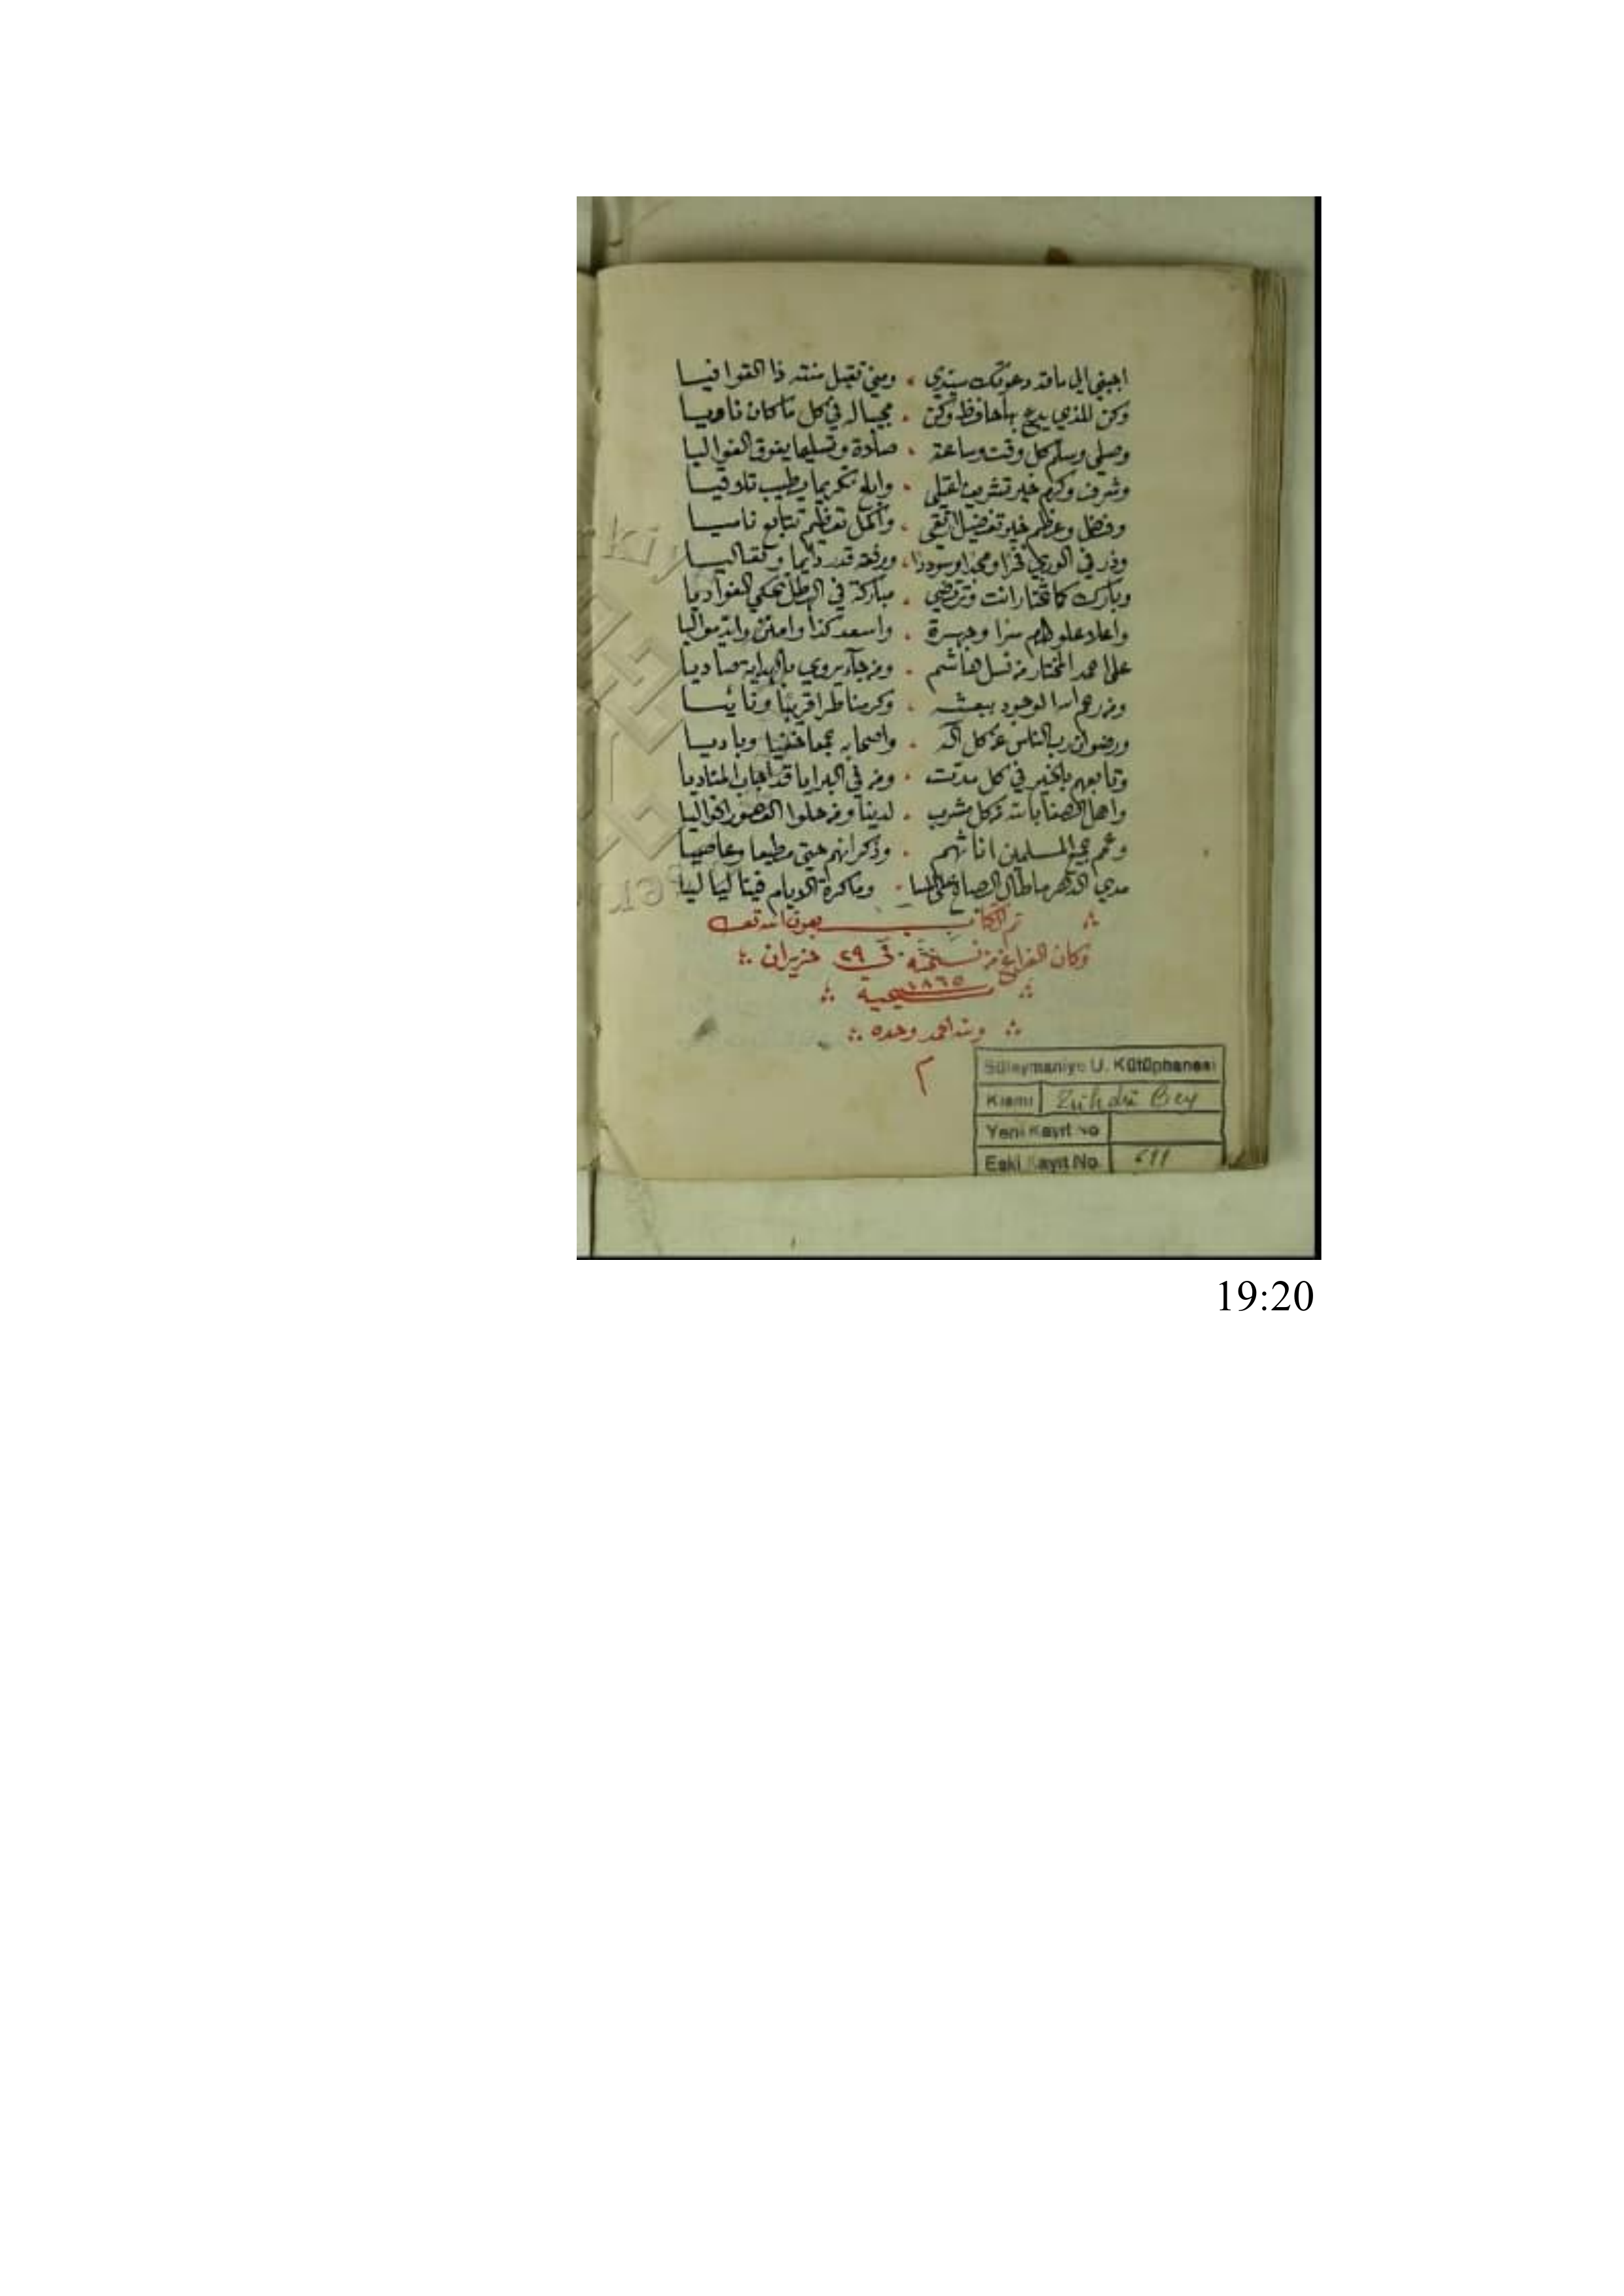 اجبني الي ما قد دعوتك سيدي . ومني تقبل منته ذا القوافيا
وكن للذي يدع بها حافظ وكن . مجيبا له في كل ما كان ناويا
وصلي وسلم كل وقت وساعة . صلاة وتسليما يفوق الغواليا
وشرف وكرم خير تشريف . وابلغ تكريما يطيب تلاقيا
وفضل وعظم خير تفضيل . واكمل تعظيم تتابع ناميا
وزد في الوري فخرا ومجدا وسوددا . ورفعة قدر دايما
وبارك كما تختار انت وترتضي . مباركة في تحكي الغواديا
واعلا علو سرا وجهرة . واسعد كذا وامنن
على احمد المختار من نسل هاشم . ومن جآء يروي بالهداية صاديا
ومن رحم الله الوجود ببعثه . وكرمنا طرا قريبا ونائيا
ورضوان رب الناس عن كل اله . واصحابه جمعا خفيا وباديا
وتابعهم بالخير في كل مدت . ومن في البرايا قد اجاب المناديا
واهل الصفا بالله من كل مشرب . لدينا ومن حلوا القصور الخواليا
وعم جميع المسلمين اناثهم . وذكرانهم حتى مطيعا وعاصيا
مدي الدهر ما طال . وما كرة الايام فينا لياليا
تم الكتاب بعون الله تعـ
وكان الفراغ من نسخه في ٢٩ حزيران
١٨٦٥ مسيحية
ولله الحمد وحده
م
Süleymaniye U. Kütüphanesi
Kısmı Zühdü Bey
Yeni Kayıt No
Eski Kayıt No.
19:20